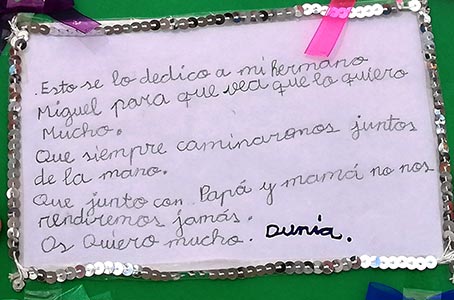 Esto se lo dedico a mi hermano
Miguel para que vea que lo quiero
Mucho.
Que siempre caminaremos juntos
de la mano.
Que junto con Papá y mamá no nos
rendiremos jamás.
Os Quiero mucho. Dunia.